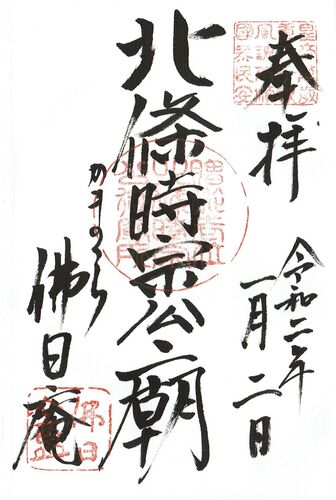 奉拝
令和二年
一月二日
北條時宗公廟
かまくら
佛日庵